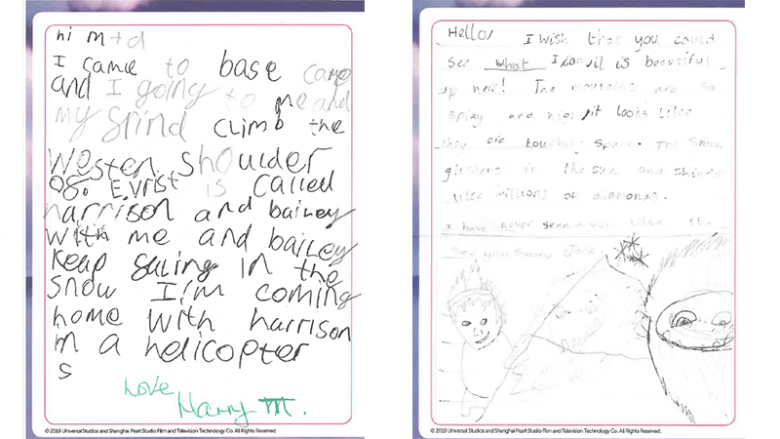 hi m+d
I came to base came
and I going to me and
my frind climb the
Westen shoulder
of. E.vrist is called
harrison and bailey
with me and bailey
Keap faling in the
snow I'm coming
home with harrison
in a helicopter
s
Love
Harry M.
© 2019 Universal Studios and Shanghai Pearl Studio Film and Television Technology Co. All Rights Reserved.
Hello! I wish that you could
see what I can is beautiful
up here! The mountains are so
spiky and high it looks like
they are touching space. The snow
glistens in the sun and shines
like millions of diamonds.
I have never seen a view like it.
See you soon, Jack
© 2019 Universal Studios and Shanghai Pearl Studio Film and Television Technology Co. All Rights Reserved.